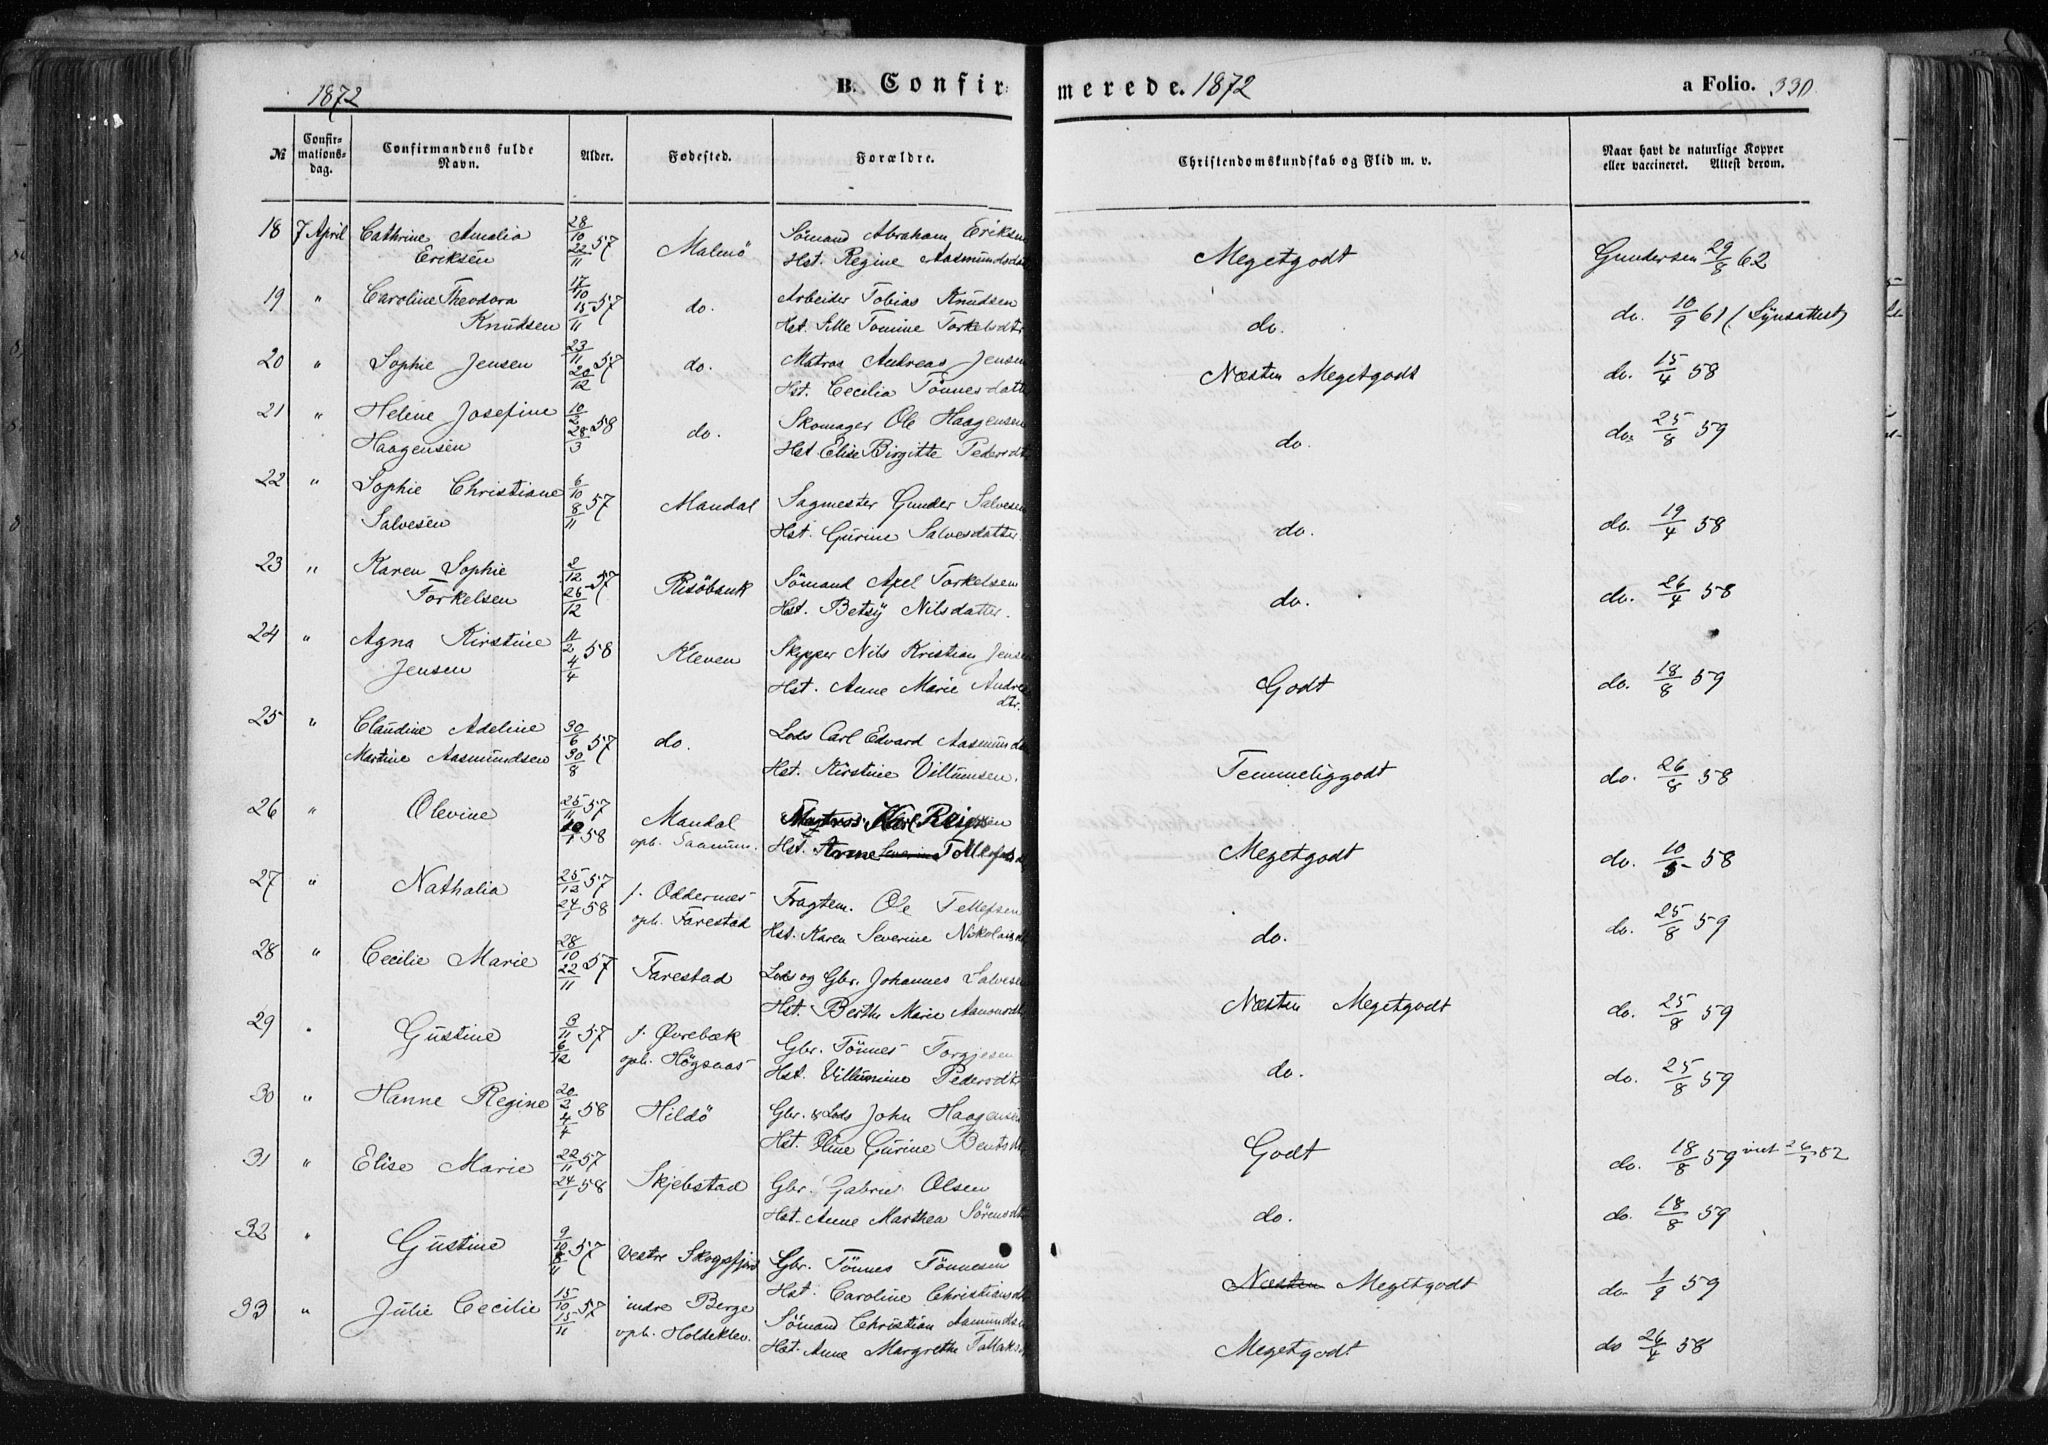 1872 B. Confirmerede. 1872 a Folio. 330
№ Confirmationsdag. Confirmandens fulde Navn. Alder. Fødested. Forældre. Christendomskundskab og Flid m. v. Naar havt de naturlige Kopper eller vaccineret. Attest derom.
18 7 April Cathrine Amalia 28/10 57 Malmö Sömand Abraham Eriksen Megetgodt Gundersen 29/8 62
Eriksen 22/11 Hst. Regine Aasmundsdatt
19 " Caroline Theodora 17/10 57 do. Arbeider Tobias Knudsen do. do. 10/9 61 (Synsattest)
Knudsen 15/11 Hst. Sille Tomine Torkelsdtr
20 " Sophie Jensen 23/11 57 do. Matros Andreas Jensen Næsten Megetgodt do. 15/4 58
20/12 Hst. Cecilia Tönnesdatter
21 " Helene Josefine 10/2 58 do. Skomager Ole Haagensen do. do. 25/8 59
Haagensen 28/3 Hst. Elise Birgitte Pedersdtr
22 " Sophie Christiane 6/10 57 Mandal Sagmester Gunder Salvesen do. do. 19/4 58
Salvesen 8/11 Hst. Gurine Salvesdatter.
23 " Karen Sophie 2/12 57 Risöbank Sömand Axel Torkelsen do. do. 26/4 58
Torkelsen 26/12 Hst. Betsy Nilsdatter.
24 " Agna Kirstine 11/2 58 Kleven Skipper Nils Kristian Jensen Godt do. 18/8 59
Jensen 4/4 Hst. Anne Marie Andreas
dtr.
25 " Claudine Adeline 30/6 57 do. Lods Carl Edvard Aasmunds Temmeliggodt do. 26/8 58
Martine Aasmundsen 30/8 Hst. Kirstine Villumsen.
26 " Olevine 25/11 57 Mandal Karl Megetgodt do. 10/5 58
10/1 58 oph. Hst. Anne Severine
27 " Nathalia 25/12 57 f. Oddernes Fragtem. Ole Tellefsen do. do. 25/8 59
24/1 58 oph. Farestad Hst. Karen Severine Nikolaisdtr
28 " Cecilie Marie 28/10 57 Farestad Lods og Gbr. Johannes Salvesen Næsten Megetgodt do. 25/8 59
22/11 Hst. Berthe Marie Aanonsdtr
29 " Gustine 3/11 57 f. Øvrebæk Gbr. Tönnes Torgjesen do. do. 25/8 59
6/12 oph. Högsaas Hst. Villumine Pedersdtr
30 " Hanne Regine 20/2 58 Hildö Gbr. & Lods John Haagensen Godt do. 18/8 59
4/4 Hst. Oline Gurine Bentsdtr
31 " Elise Marie 22/11 57 Skjebstad Gbr. Gabriel Olsen do. do. 18/8 59
24/1 58 Hst. Anne Marthea Sörensdtr
32 " Gustine 9/10 57 vestre Skogsfjord Gbr. Tönnes Tönnesen Næsten Megetgodt do. 1/9 59
8/11 Hst. Caroline Christiansdtr
33 " Julie Cecilie 15/10 57 indre Berge Sömand Christian Aamundsen Megetgodt do 26/4 58
15/11 oph. Holdeklev. Hst. Anne Margrethe Tallaks